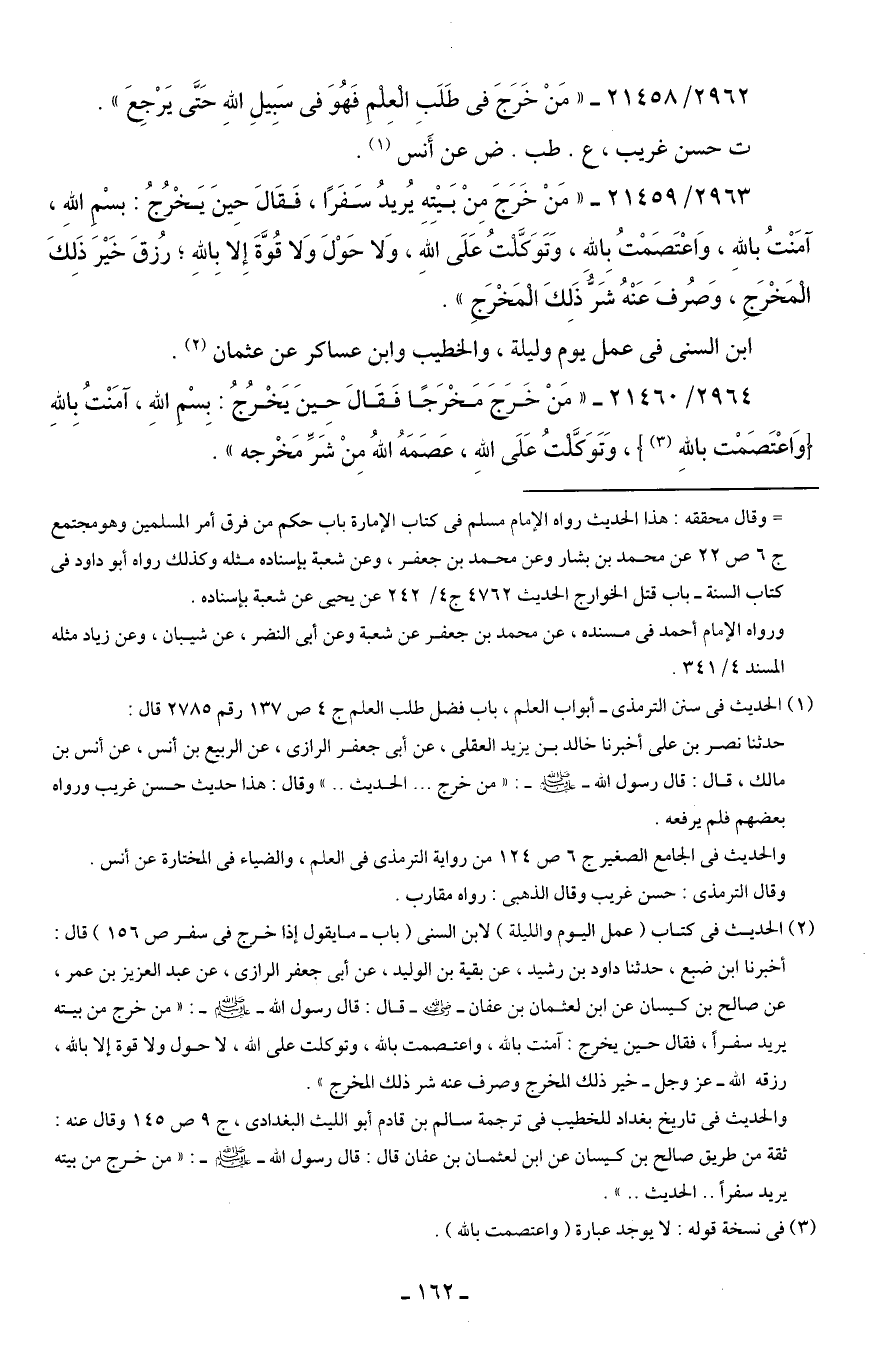 ٢١٤٥٨/٢٩٦٢ ـ « مَنْ خَرَجَ فى طَلَبِ الْعِلْمِ فَهُوَ فى سَبِيلِ اللهِ حَتَّى يَرْجِعَ » .
ت حسن غريب ، ع . طب . ض عن أَنس (١) .
٢١٤٥٩/٢٩٦٣ ـ « مَنْ خَرَجَ مِنْ بَيْتِهِ يُرِيدُ سَفَرًا ، فَقَالَ حِينَ يَخْرُجُ : بِسْمِ اللهِ ،
آمَنْتُ بِاللهِ ، وَاعْتَصَمْتُ بِاللهِ ، وَتَوَكَّلْتُ عَلَى اللهِ ، وَلَا حَوْلَ وَلَا قُوَّةَ إِلا بِاللهِ ؛ رُزِقَ خَيْرَ ذَلِكَ
الْمَخْرَجِ ، وَصُرِفَ عَنْهُ شَرُّ ذَلِكَ الْمَخْرَجِ » .
ابن السنى فى عمل يوم وليلة ، والخطيب وابن عساكر عن عثمان (٢) .
٢١٤٦٠/٢٩٦٤ ـ « مَنْ خَرَجَ مَخْرَجًا فَقَالَ حِينَ يَخْرُجُ : بِسْمِ اللهِ ، آمَنْتُ بِاللهِ
{وَاعْتَصَمْت بِاللهِ (٣) } ، وَتَوَكَّلْتُ عَلَى اللهِ ، عَصَمَهُ اللهُ مِنْ شَرِّ مَخْرجه » .
= وقال محققه : هذا الحديث رواه الإمام مسلم فى كتاب الإمارة باب حكم من فرق أمر المسلمين وهو مجتمع
ج ٦ ص ٢٢ عن محمد بن بشار وعن محمد بن جعفر ، وعن شعبة بإسناده مثله وكذلك رواه أبو داود فى
كتاب السنة ـ باب قتل الخوارج الحديث ٤٧٦٢ ج٤/ ٢٤٢ عن يحيى عن شعبة بإسناده .
ورواه الإمام أحمد فى مسنده ، عن محمد بن جعفر عن شعبة وعن أبى النضر ، عن شيبان ، وعن زياد مثله
المسند ٤/ ٣٤١ .
(١) الحديث فى سنن الترمذى ـ أبواب العلم ، باب فضل طلب العلم ج ٤ ص ١٣٧ رقم ٢٧٨٥ قال :
حدثنا نصر بن على أخبرنا خالد بن يزيد العقلى ، عن أبى جعفر الرازى ، عن الربيع بن أنس ، عن أنس بن
مالك ، قال : قال رسول الله ـ ﷺ ـ : « من خرج ... الحديث .. » وقال : هذا حديث حسن غريب ورواه
بعضهم فلم يرفعه .
والحديث فى الجامع الصغير ج ٦ ص ١٢٤ من رواية الترمذى فى العلم ، والضياء فى المختارة عن أنس .
وقال الترمذى : حسن غريب وقال الذهبى : رواه مقارب .
(٢) الحديث فى كتاب ( عمل اليوم والليلة ) لابن السنى ( باب ـ مايقول إذا خرج فى سفر ص ١٥٦ ) قال :
أخبرنا ابن ضبع ، حدثنا داود بن رشيد ، عن بقية بن الوليد ، عن أبى جعفر الرازى ، عن عبد العزيز بن عمر ،
عن صالح بن كيسان عن ابن لعثمان بن عفان ـ رضي الله عنه ـ قال : قال رسول الله ـ ﷺ ـ : « من خرج من بيته
يريد سفراً ، فقال حين يخرج : آمنت بالله ، واعتصمت بالله ، وتوكلت على الله ، لا حول ولا قوة إلا بالله ،
رزقه الله ـ عز وجل ـ خير ذلك المخرج وصرف عنه شر ذلك المخرج » .
والحديث فى تاريخ بغداد للخطيب فى ترجمة سالم بن قادم أبو الليث البغدادى ، ج ٩ ص ١٤٥ وقال عنه :
ثقة من طريق صالح بن كيسان عن ابن لعثمان بن عفان قال : قال رسول الله ـ ﷺ ـ : « من خرج من بيته
يريد سفراً .. الحديث .. » .
(٣) فى نسخة قوله : لا يوجد عبارة ( واعتصمت بالله ) .
ـ ١٦٢ ـ